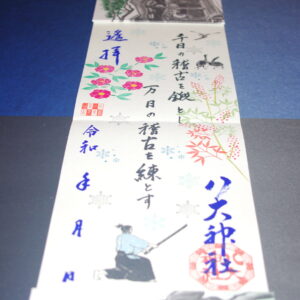 千日の稽古を鍛とし
万日の稽古を練とす
遥拝
八大神社
令和 年 月 日